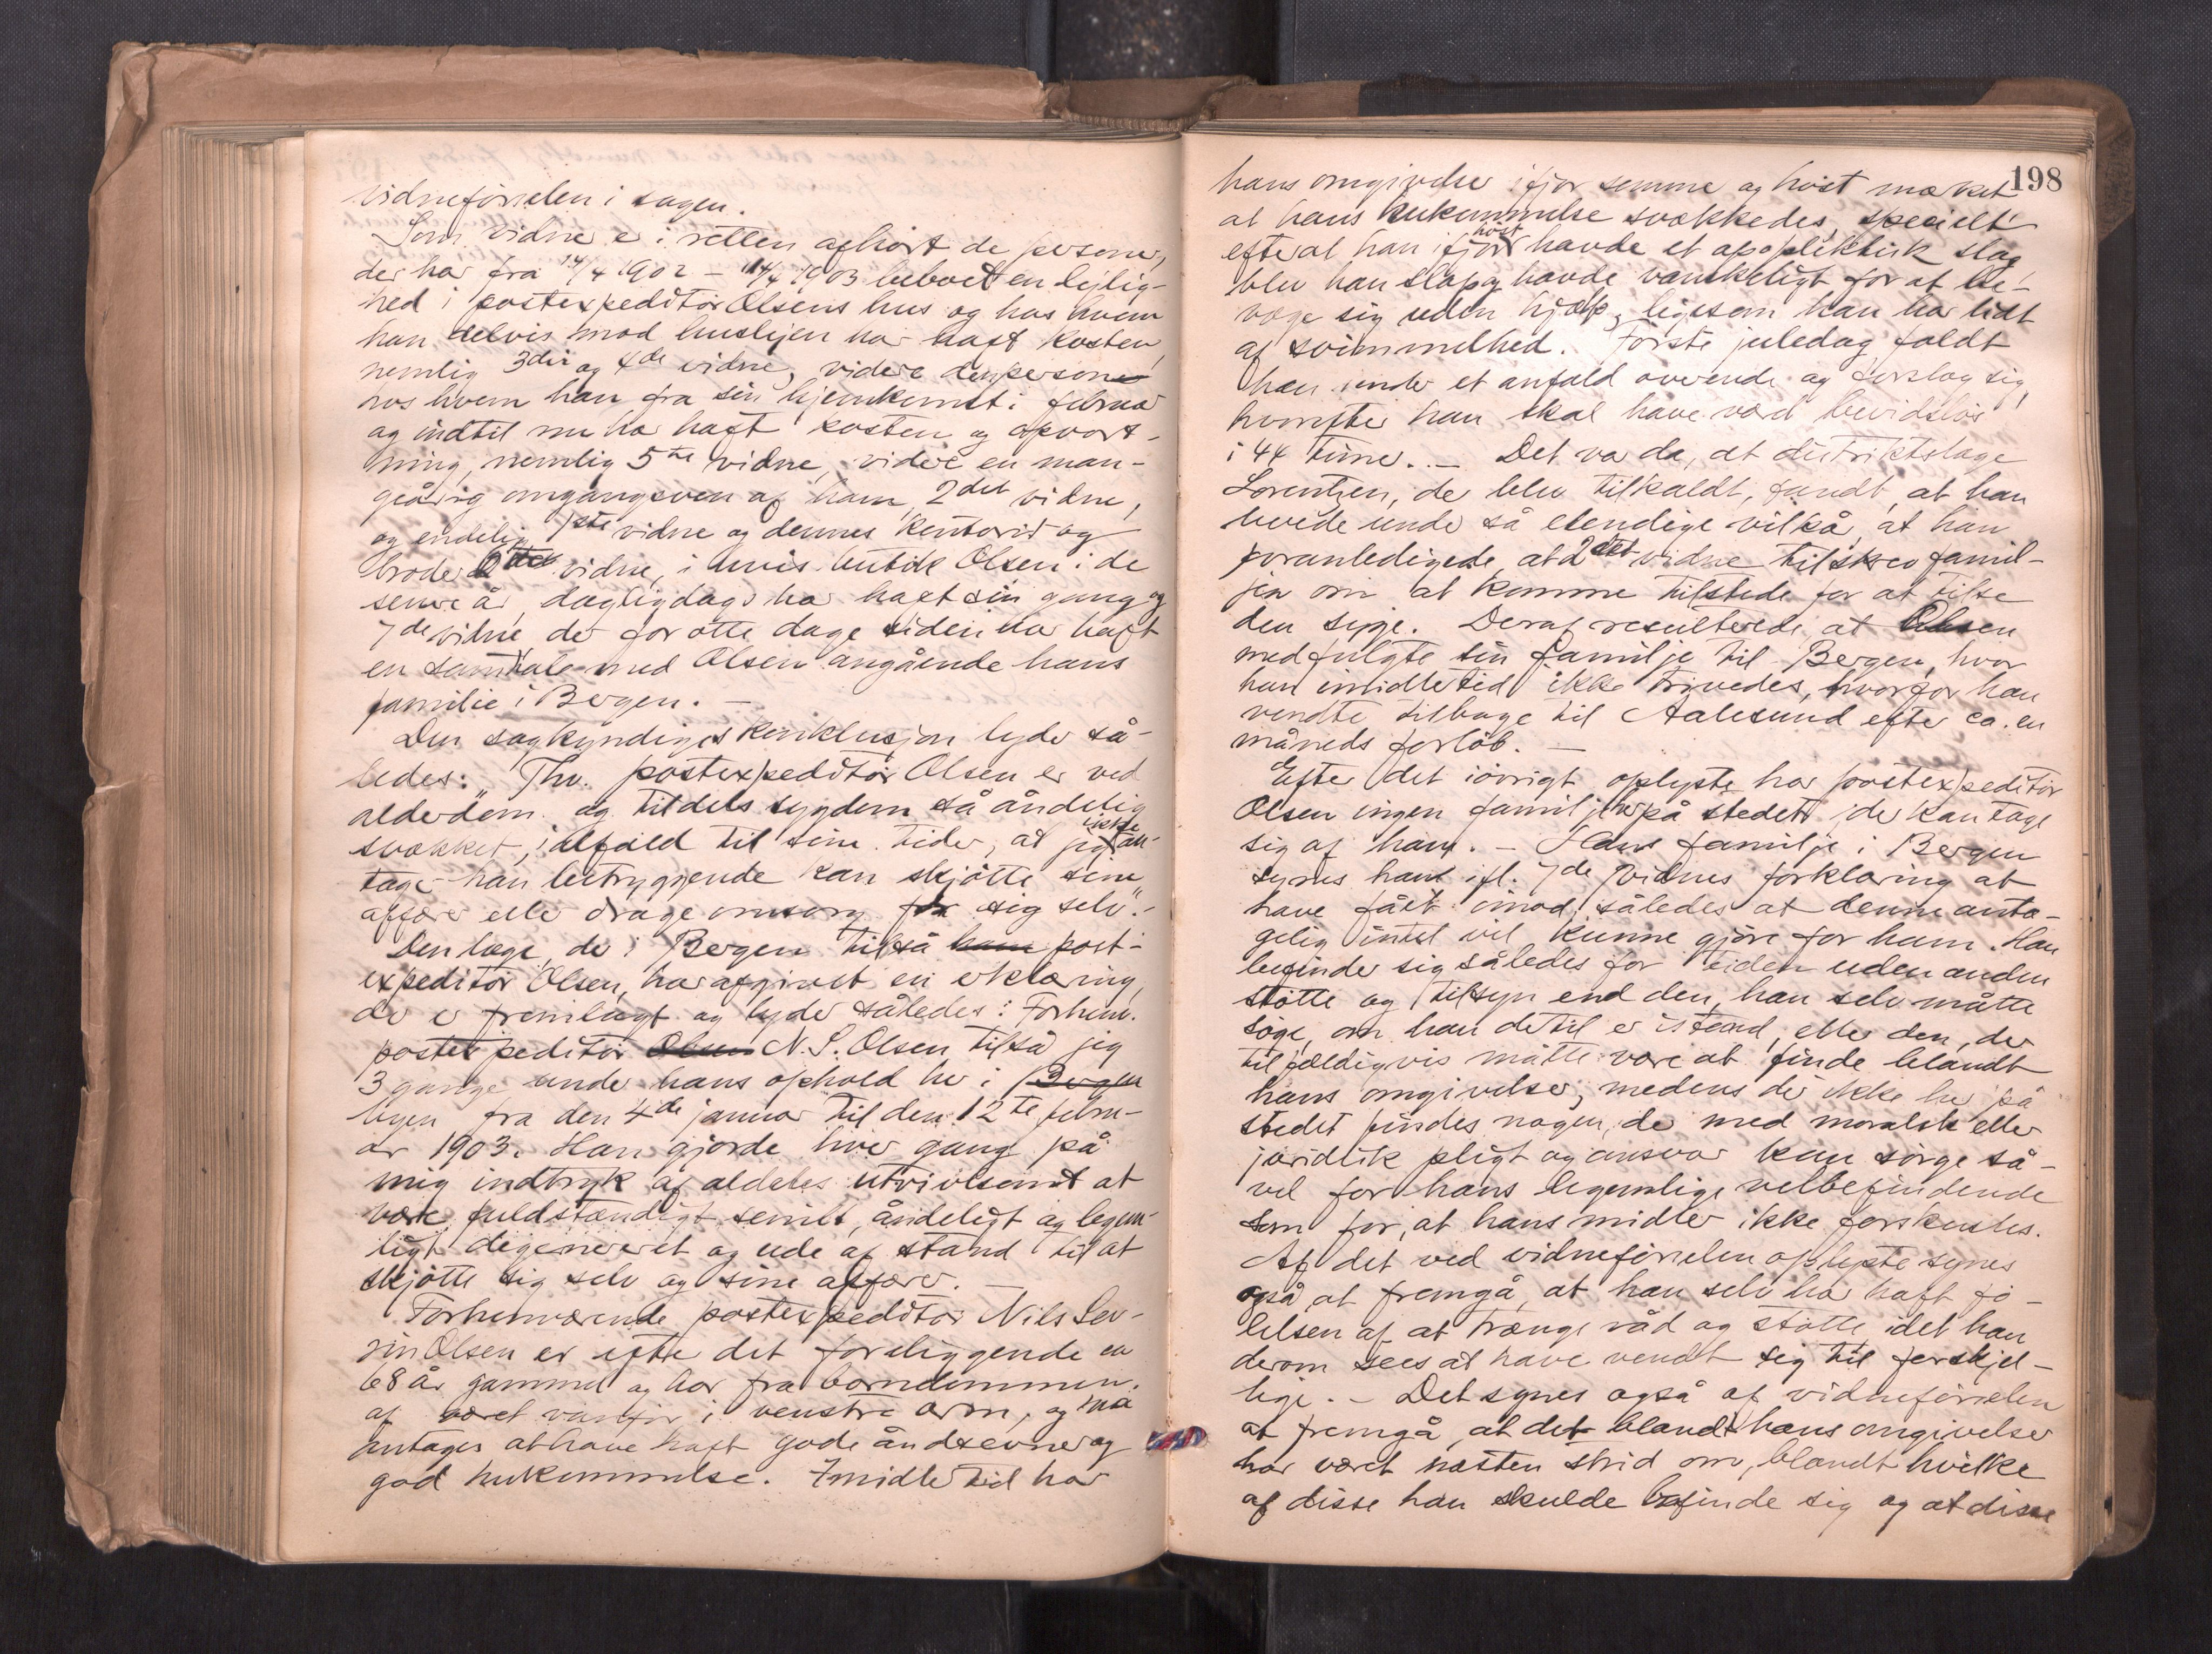 vidneførselen i sagen.
Som vidne er i retten afhørt de personer,
der har fra 14/4 1902 - 14/4 1903 beboet en lejlig-
hed i postexpeditør Olsens hus og hos hvem
han delvis mod huslejen har haft kosten,
nemlig 3die og 4de vidne, videre den person
hos hvem han fra sin hjemkomst i februar
og indtil nu har haft kosten og opvart-
ning, nemlig 5te vidne, videre en man-
geårig omgangsven af ham, 2det vidne,
og endelig 1ste vidne og dennes kontorist og
broder vidne, i hvis butik Olsen i de
senere år dagligdags har haft sin gang og
7de vidne der for otte dage siden har haft
en samtale med Olsen angående hans
familie i Bergen. -
Den sagkyndiges konklusjon lyder så-
ledes: "Fhv. postexpeditør Olsen er ved
alderdom og tildels sygdom så åndelig
svækket, ialfald til sine tider, at jeg ikke an-
tager han betryggende kan skjøtte sine
affærer eller drage omsorg for sig selv". -
Den læge, der i Bergen tilså ham post-
expeditør Olsen, har afgivet en erklæring,
der er fremlagt og lyder således: Forhenv.
postexpeditør Olsen N. S. Olsen tilså jeg
3 gange under hans ophold her i Bergen
byen fra den 4de januar til den 12te febru-
ar 1903. Han gjorde hver gang på
mig indtryk af aldeles utvivlsomt at
være fuldstændigt senilt, åndeligt og legem-
ligt degenereret og ude af stand til at
skjøtte sig selv og sine affærer. -
Forhenværende postexpeditør Nils Sev-
rin Olsen er efter det foreliggende en
68 år gammel og har fra barndommen
af været vanfør i venstre arm, og må
antages at have haft gode åndsevner og
god hukommelse. Imidlertid har
198
hans omgivelser ifjor sommer og høst mærket
at hans hukommelse svækkedes, specielt
efter at han ifjor høst havde et apoplektisk slag
blev han slap og havde vanskeligt for at be-
væge sig uden hjælp, ligesom han har lidt
af svimmelhed. Første juledag faldt
han under et anfald overende og forslog sig,
hvorefter han skal have været bevidstløs
i 44 timer. - Det var da, at distriktslæge
Lorentzen, der blev tilkaldt, fandt, at han
levede under så elendige vilkår, at han
foranledigede, at 2det vidne tilskrev famil-
jen om at komme tilstede for at tilse
den syge. Deraf resulterede at Olsen
medfulgte sin familje til Bergen, hvor
han imidlertid ikke trivedes, hvorfor han
vendte tilbage til Aalesund efter ca. en
måneds forløb. -
Efter det iøvrigt oplyste har postexpeditør
Olsen ingen familje her på stedet der kan tage
sig af ham. - Hans familje i Bergen
synes han ifl. 7de vidnes forklaring at
have fået imod, således at denne anta-
gelig intet vil kunne gjøre for ham. Han
befinder sig således for tiden uden anden
støtte og tilsyn end den, han selv måtte
søge, om han dertil er istand, eller den, der
tilfældigvis måtte være at finde blandt
hans omgivelser, medens der ikke her på
stedet findes nogen, der med moralsk eller
juridisk pligt og ansvar kan sørge så-
vel for hans legemlige velbefindende
som for, at hans midler ikke forskusles.
Af det ved vidneførselen oplyste synes
også at fremgå, at han selv har haft fø-
lelsen af at trænge råd og støtte, idet han
derom sees at have vendt sig til forskjel-
lige. - Det synes også af vidneførselen
at fremgå, at det blandt hans omgivelser
har været næsten strid om, blandt hvilke
af disse han skulde befinde sig og at disse